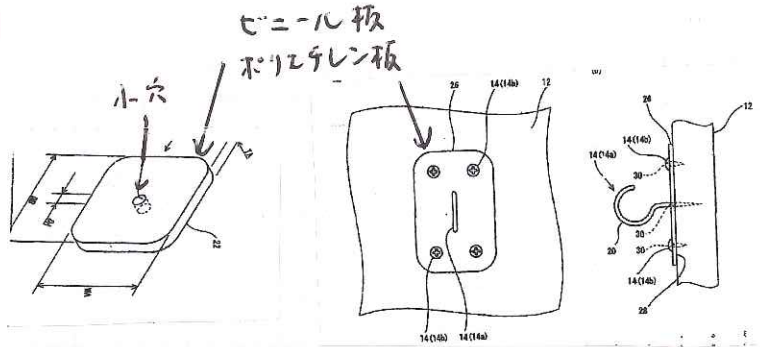 ビニール板
ポリエチレン板
小穴
22
26
14(14b)
12
14(14b)
14(14a)
26
12
14(14b)
14(14a)
30
30
20
30
14(14b)
28